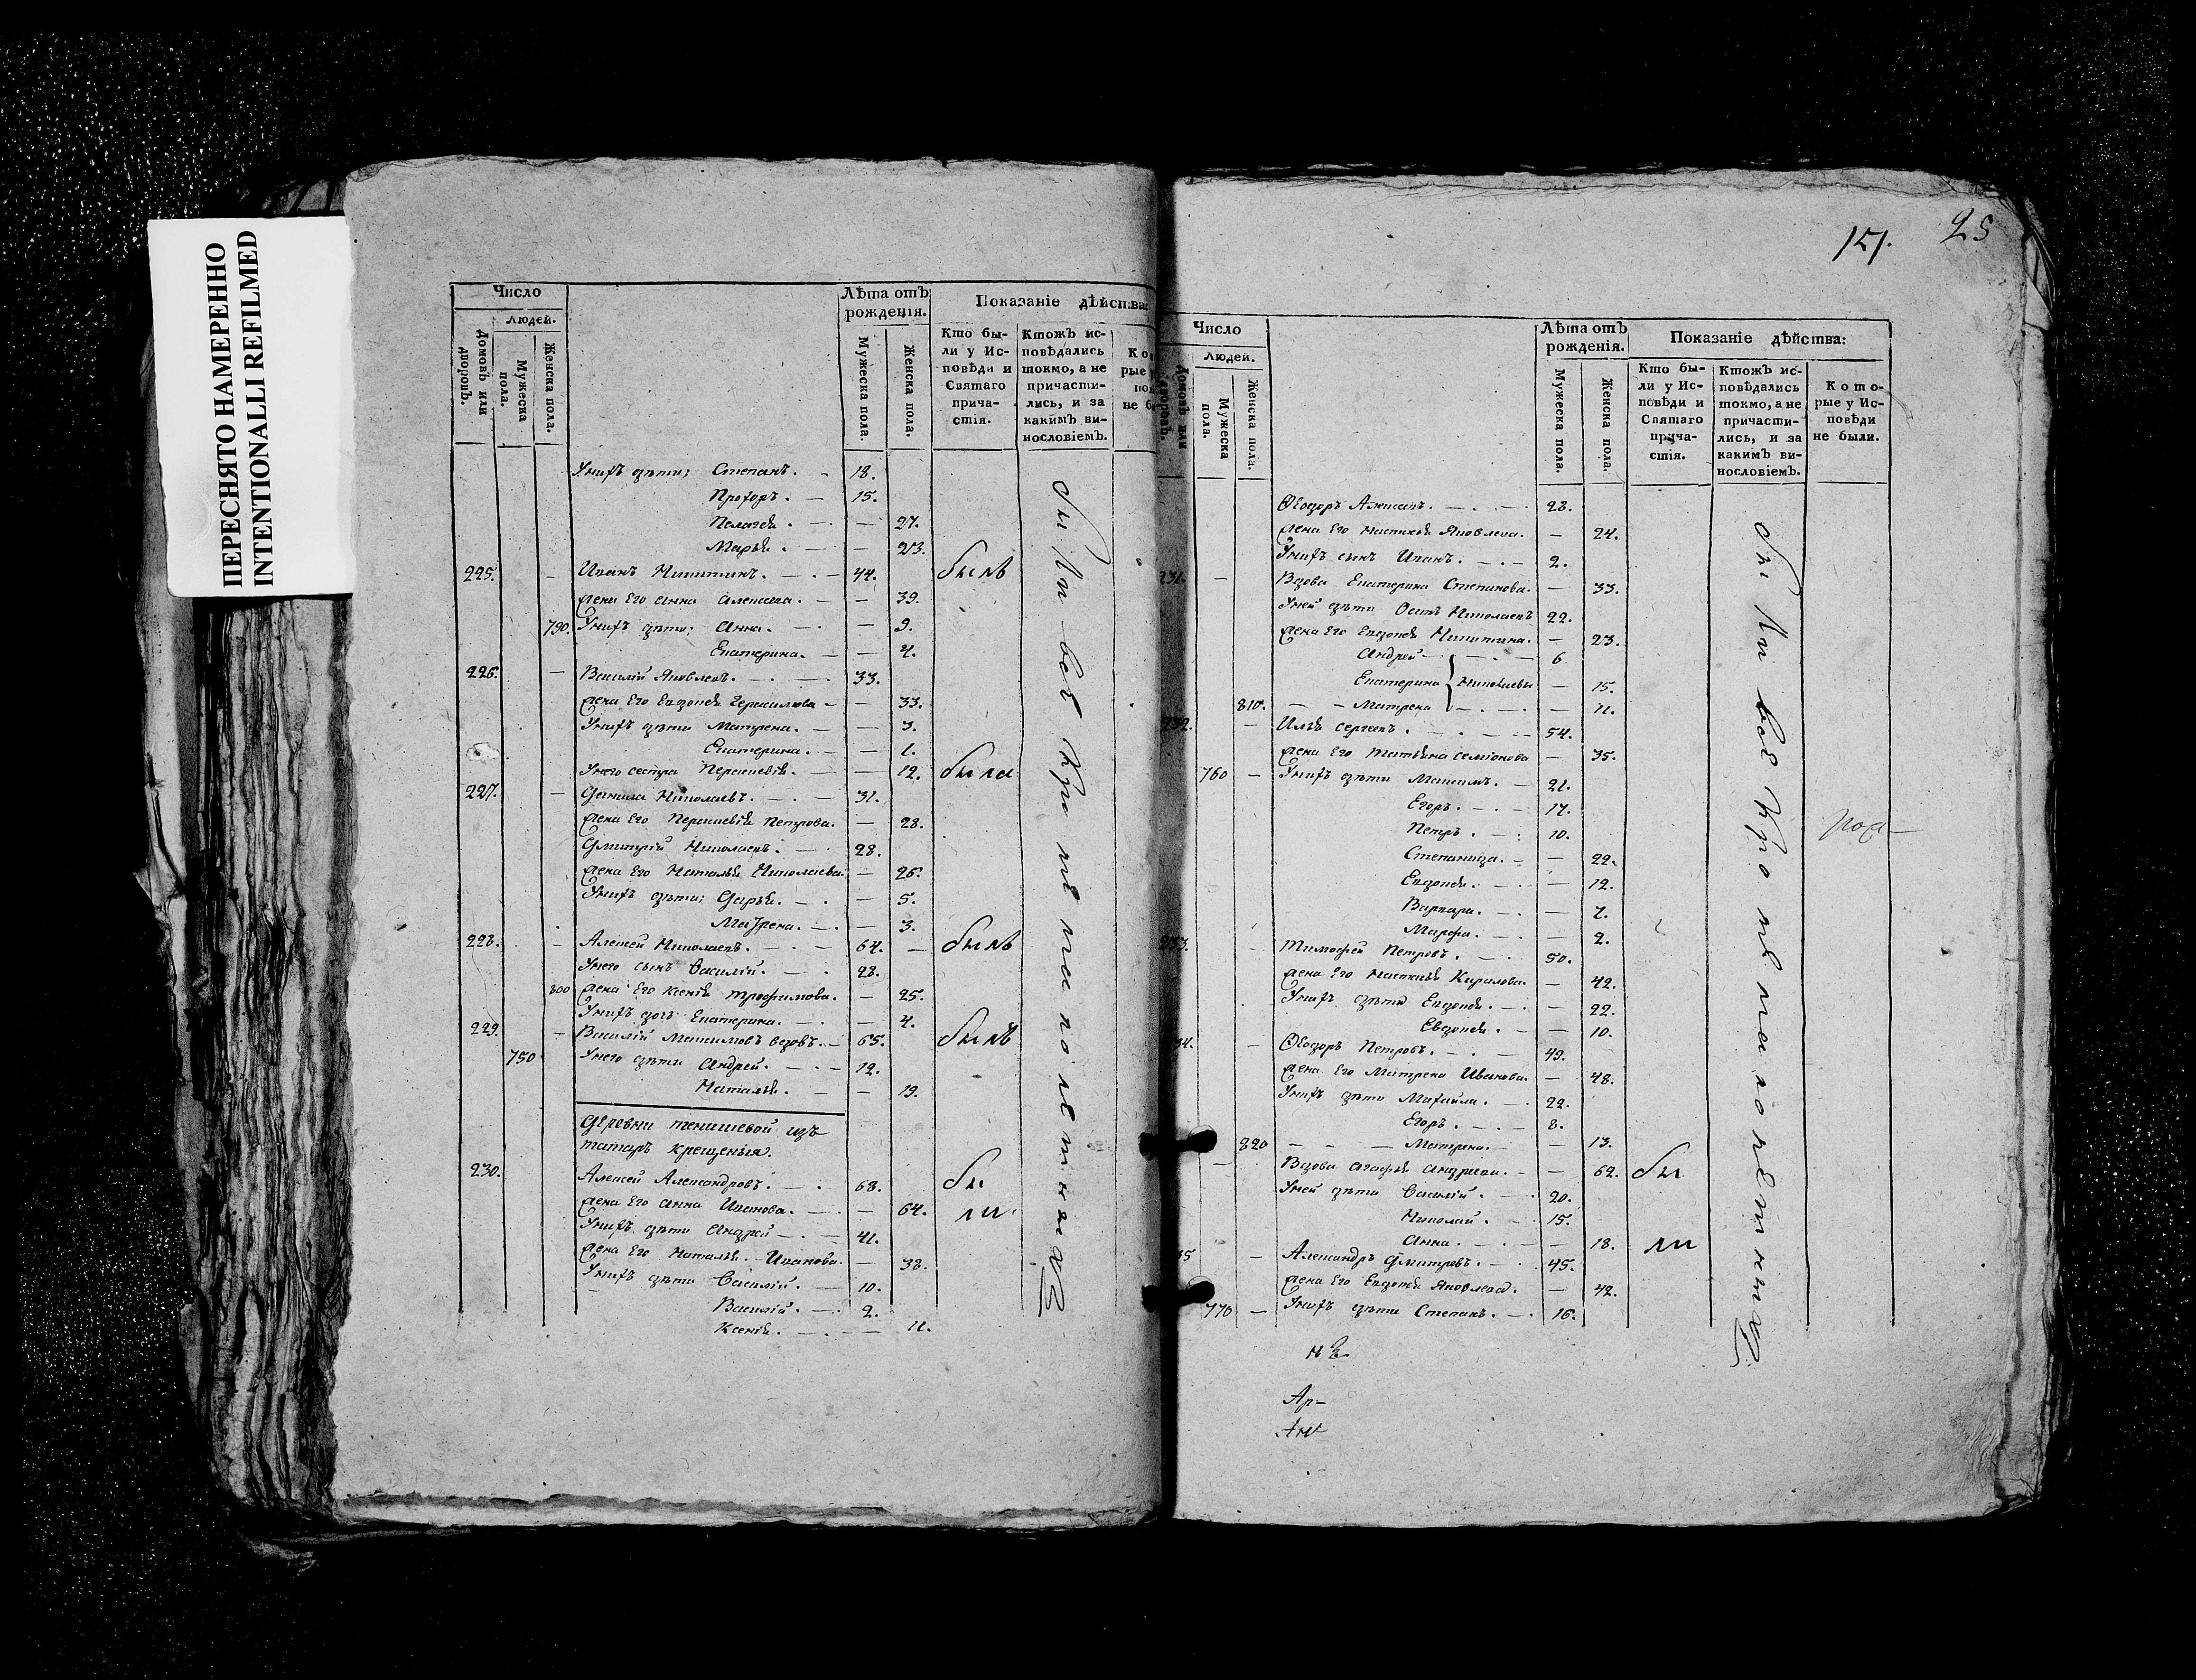 ПЕРЕСНЯТО НАМЕРЕННО
INTENTIONALLI REFILMED
Число
Людей.
Домовъ или дворовъ.
Мужеска пола.
Женска пола.
Лѣта отъ рожденія.
Мужеска пола.
Женска пола.
Показаніе дѣйства:
Кто были у Исповѣди и Святаго причастія.
Ктожъ исповѣдались токмо, а не причастились, и за какимъ винословіемъ.
Унихъ дѣти: Степанъ. 18.
Прохоръ. 15.
Пелагея. 27.
Марья. 23.
225. Иванъ Никитинъ. 44. былъ
жена Его Анна Алексеева. 39.
790. Унихъ дѣти: Анна. 9.
Екатерина. 4.
226. Василій Яковлевъ. 33.
жена Его Евдокея Герасимова 33.
Унихъ дѣти Матрена. 3.
Екатерина. 1.
Унего сестра Перасковія. 12. была
227. Данила Николаевъ. 31.
жена Его Перасковія Петрова. 28.
Дмитрій Николаевъ. 28.
жена Его Наталья Николаева. 26.
Унихъ дѣти: Дарья. 5.
Матрена. 3.
228. Алексей Николаевъ. 64. былъ
Унего сынъ Василій. 28.
800 жена Его Ксенія Трофимова. 25.
Унихъ дочь Екатерина. 4.
229. Василій Максимовъ вдовъ. 65. былъ
750 Унего дѣти Андрей. 12.
Наталья. 19.
Деревни Тенишевой изъ
татаръ крещеныя.
230. Алексей Александровъ. 68. бы
жена Его Анна Иванова. 64. ли
Унихъ дѣти Андрей 41.
жена Его Наталья Иванова. 38.
Унихъ дѣти Василій. 10.
Василій. 2.
Ксенія. 11.
были все
151. 25
Число
Людей.
Домовъ или дворовъ.
Мужеска пола.
Женска пола.
Лѣта отъ рожденія.
Мужеска пола.
Женска пола.
Показаніе дѣйства:
Кто были у Исповѣди и Святаго причастія.
Ктожъ исповѣдались токмо, а не причастились, и за какимъ винословіемъ.
Которые у Исповѣди не были.
Ѳеодоръ 28.
жена Его Настасья Яковлева. 24.
Унихъ сынъ Иванъ. 2.
231. Вдова Екатерина Степанова. 33.
Уней дѣти Осипъ Николаевъ 22.
жена Его Евдокея Никитина. 23.
Андрей 6
Екатерина Николаевы 15.
810. Матрена 11.
232. Илья Сергеевъ. 54.
жена Его Татьяна Семіонова 35.
760 Унихъ дѣти Максимъ. 21.
Егоръ. 17.
Петръ. 10.
Степанида. 22.
Евдокея. 12.
Варвара. 7.
Марфа. 2.
233. Тимофей Петровъ. 50.
жена Его Настасья Кирилова. 42.
Унихъ дѣти Евдокея. 22.
Евдокея. 10.
34. Ѳеодоръ Петровъ. 49.
жена Его Матрена Иванова. 48.
Унихъ дѣти Михайла. 22.
Егоръ. 8.
820 Матрена. 13.
Вдова Агафья Андреева. 62. бы
Уней дѣти Василій. 20.
Николай. 15.
Анна. 18. ли
35 Александръ Дмитревъ. 45.
жена Его Евдокея Яковлева. 42.
770 Унихъ дѣти Степанъ. 16.
были все
Ар-